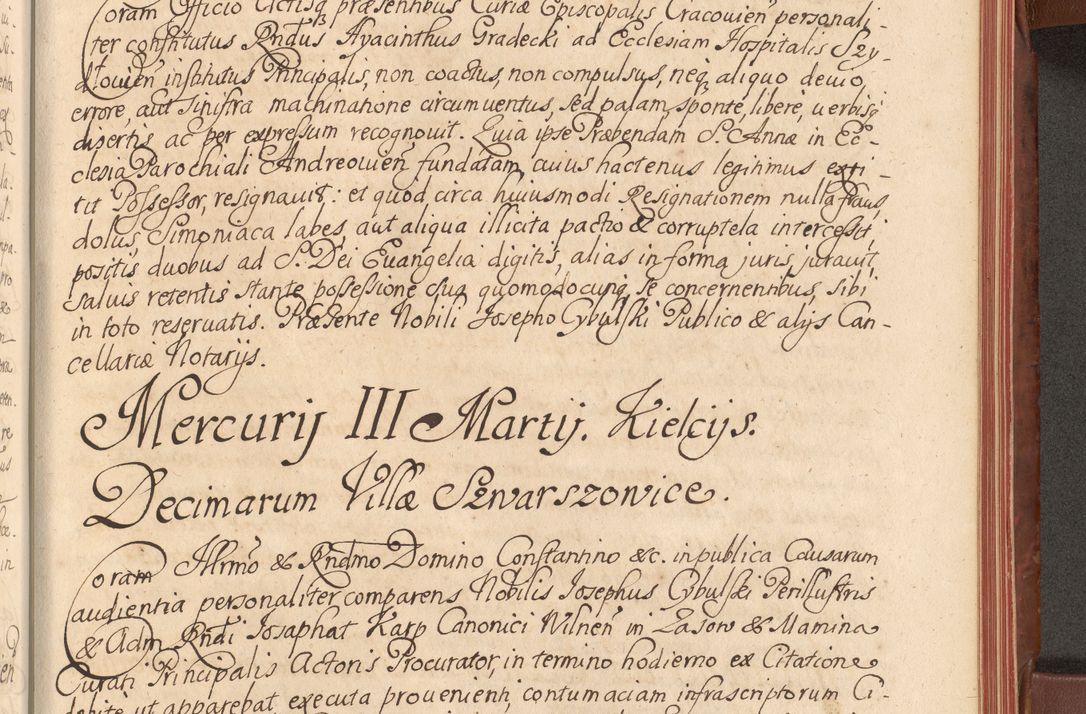 Coram Officio Actisq præsentibus Curiæ Episcopalis Cracovien personali-
ter constitutus Rndus Hyacinthus Gradecki ad Ecclesiam Hospitalis Szy-
dlovien institutus Principalis, non coactus, non compulsus, neq aliquo devio,
errore, aut sinistra machinatione circumventus, sed palam, sponte, libere, verbisq
disertis ac per expressum recognovit. Quia ipse Præbendam S. Annæ in Ec-
clesia Parochiali Andreovien fundatam, cuius hactenus legitimus exti-
tit Possessor, resignavit: et quod circa huiusmodi Resignationem nulla fraus,
dolus, Simoniaca labes aut aliqua illicita pactio & corruptela intercessit,
positis duobus ad S. Dei Evangelia digitis, alias in forma juris, juravit,
salvis retentis stante possessione sua quomodocunq se concernentibus, sibi
in toto reservatis. Præsente Nobili Josepho Cybulski Publico & alijs Can-
cellariæ Notarijs.
Mercurij III Martij. Kielcijs.
Decimarum Villæ Szwarszowice.
Coram Illrmo & Rndmo Domino Constantino &c. in publica Causarum
audientia personaliter comparens Nobilis Josephus Cybulski Perillustris
& Adm Rndi Josaphat Karp Canonici Vilnen in Zasow & Mamina
Curati Principalis Actoris Procurator, in termino hodierno ex Citatione
debite ut apparebat executa provenienti, contumaciam infrascriptorum Ci-